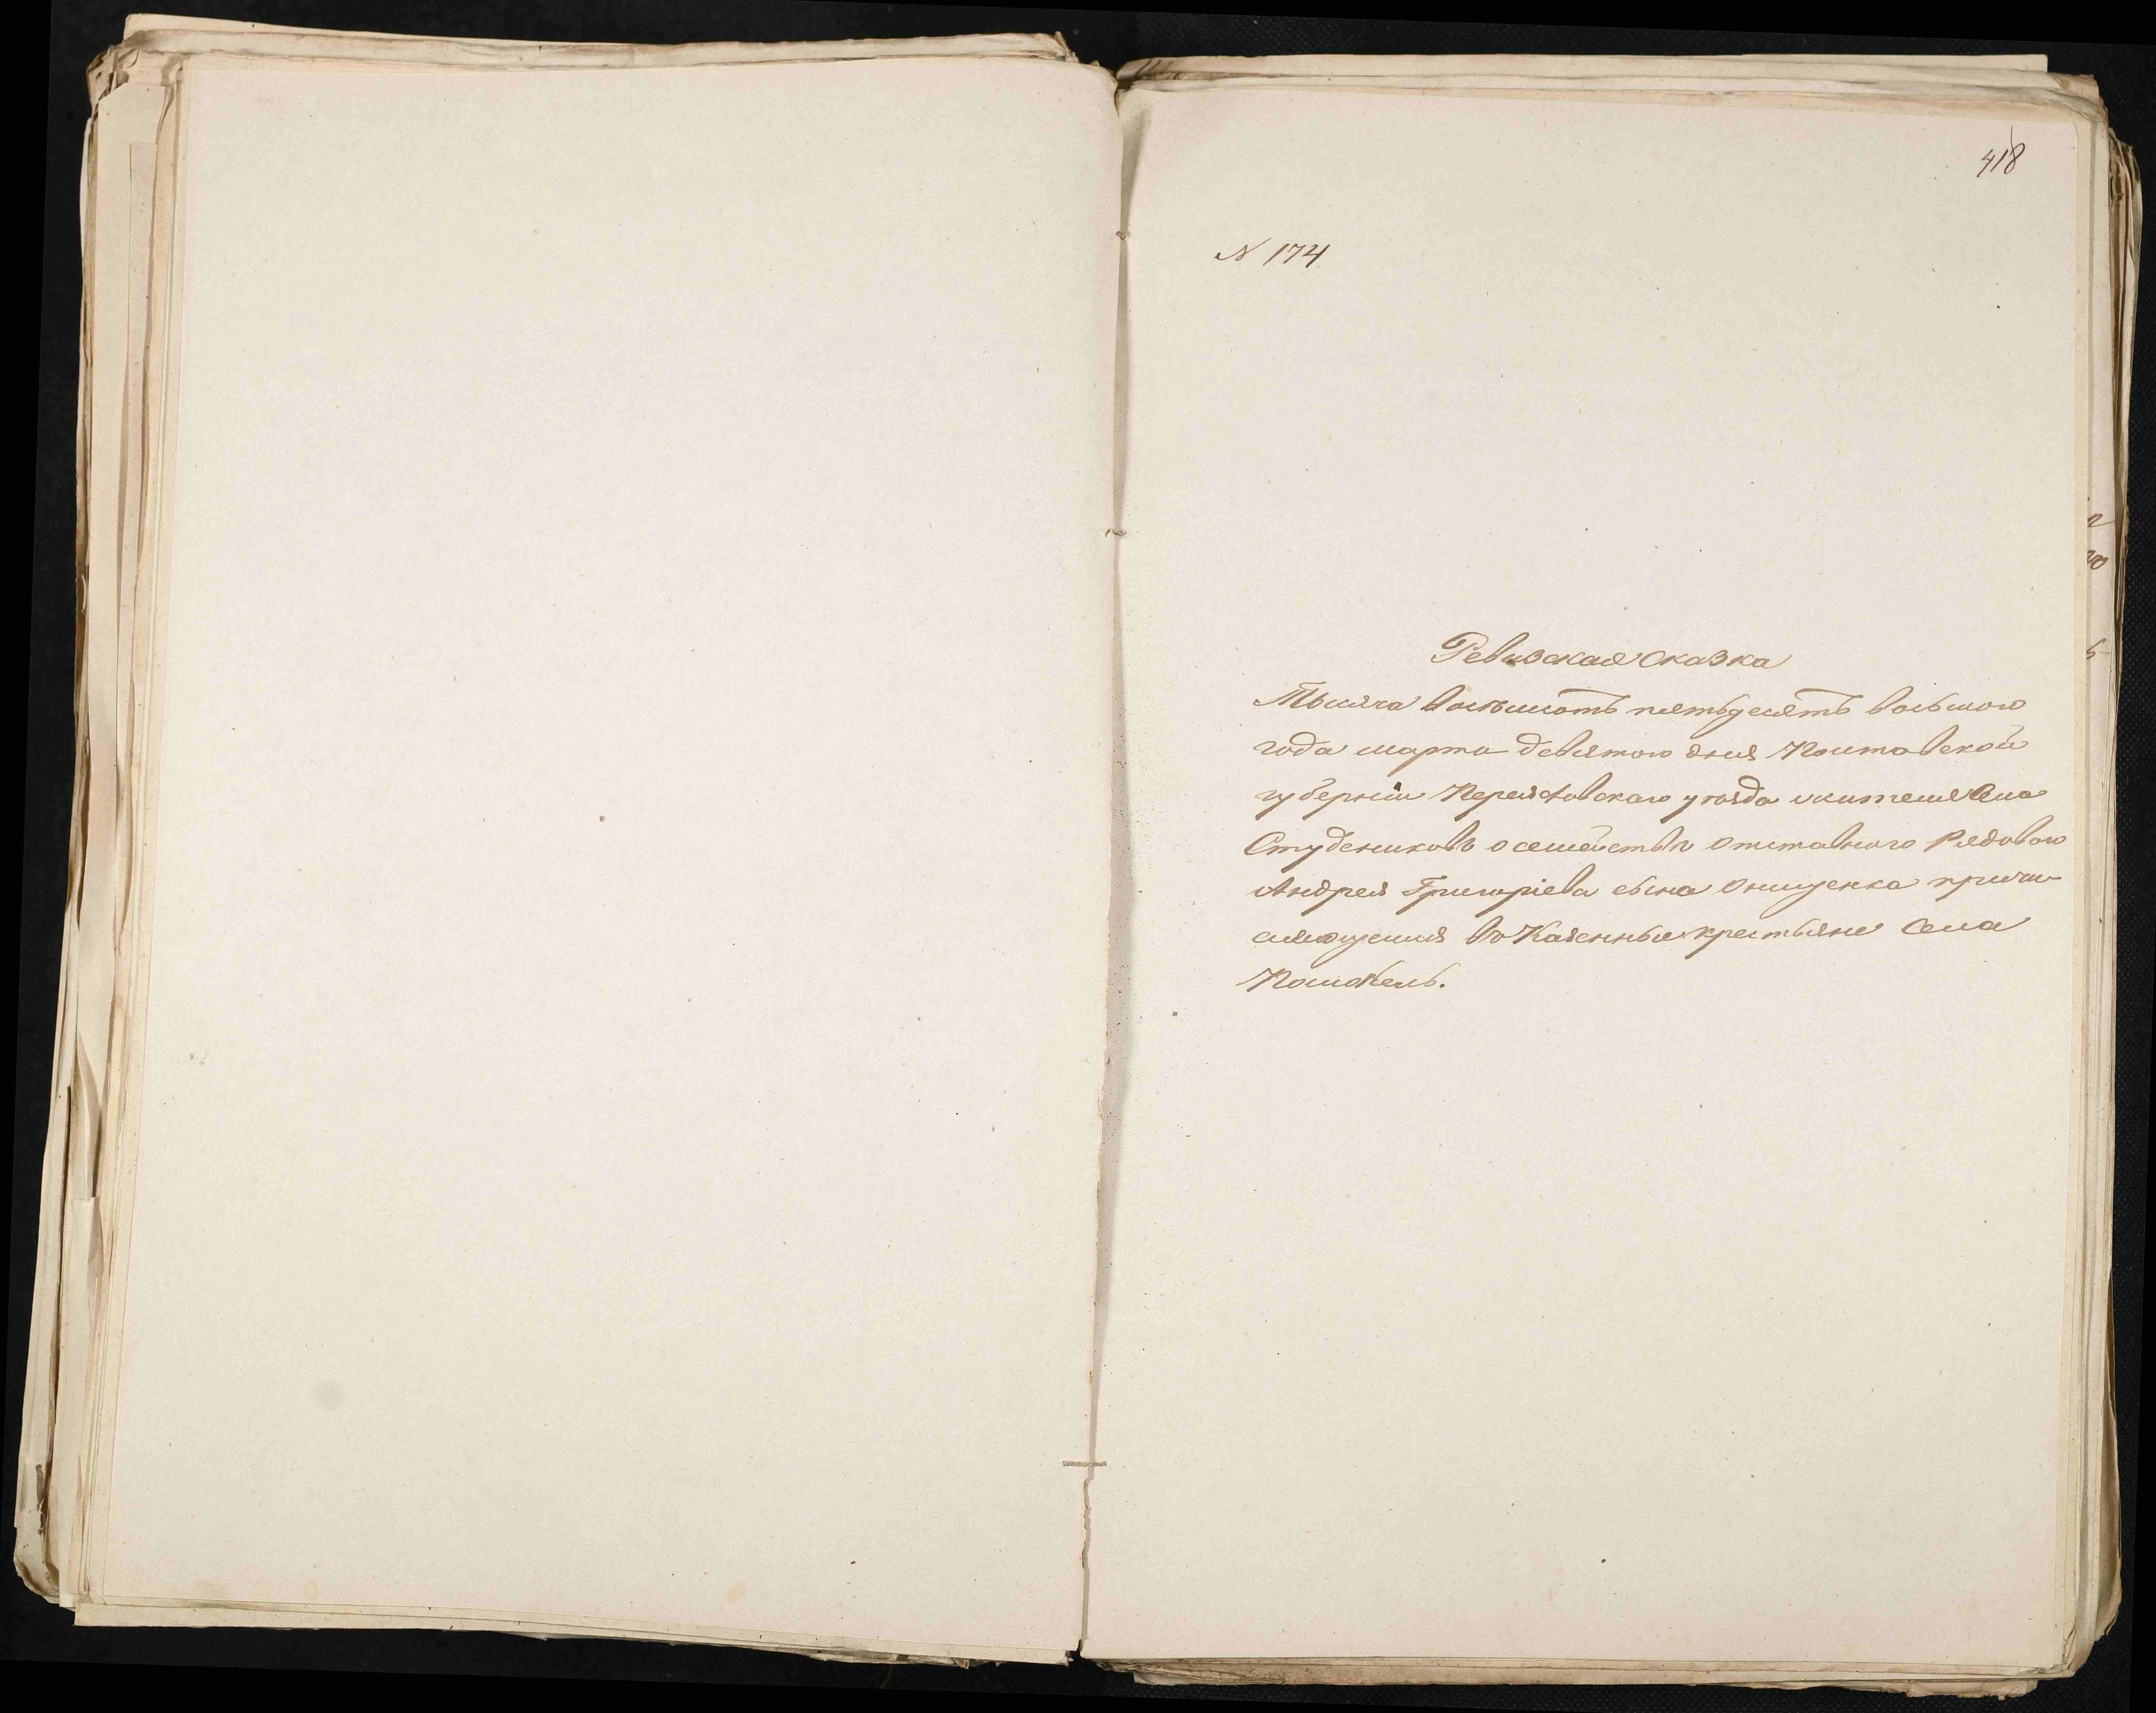 418
N 174
Ревизская сказка
Тысяча восьмсотъ пятьдесятъ восьмого
года марта девятого дня Полтавской
губерніи Переяславскаго уѣзда жителя села
Студениковъ о семействѣ отставного Рядового
Андрея Григоріева сына Онищенка причи-
сляющегося въ Казенные крестьяне села